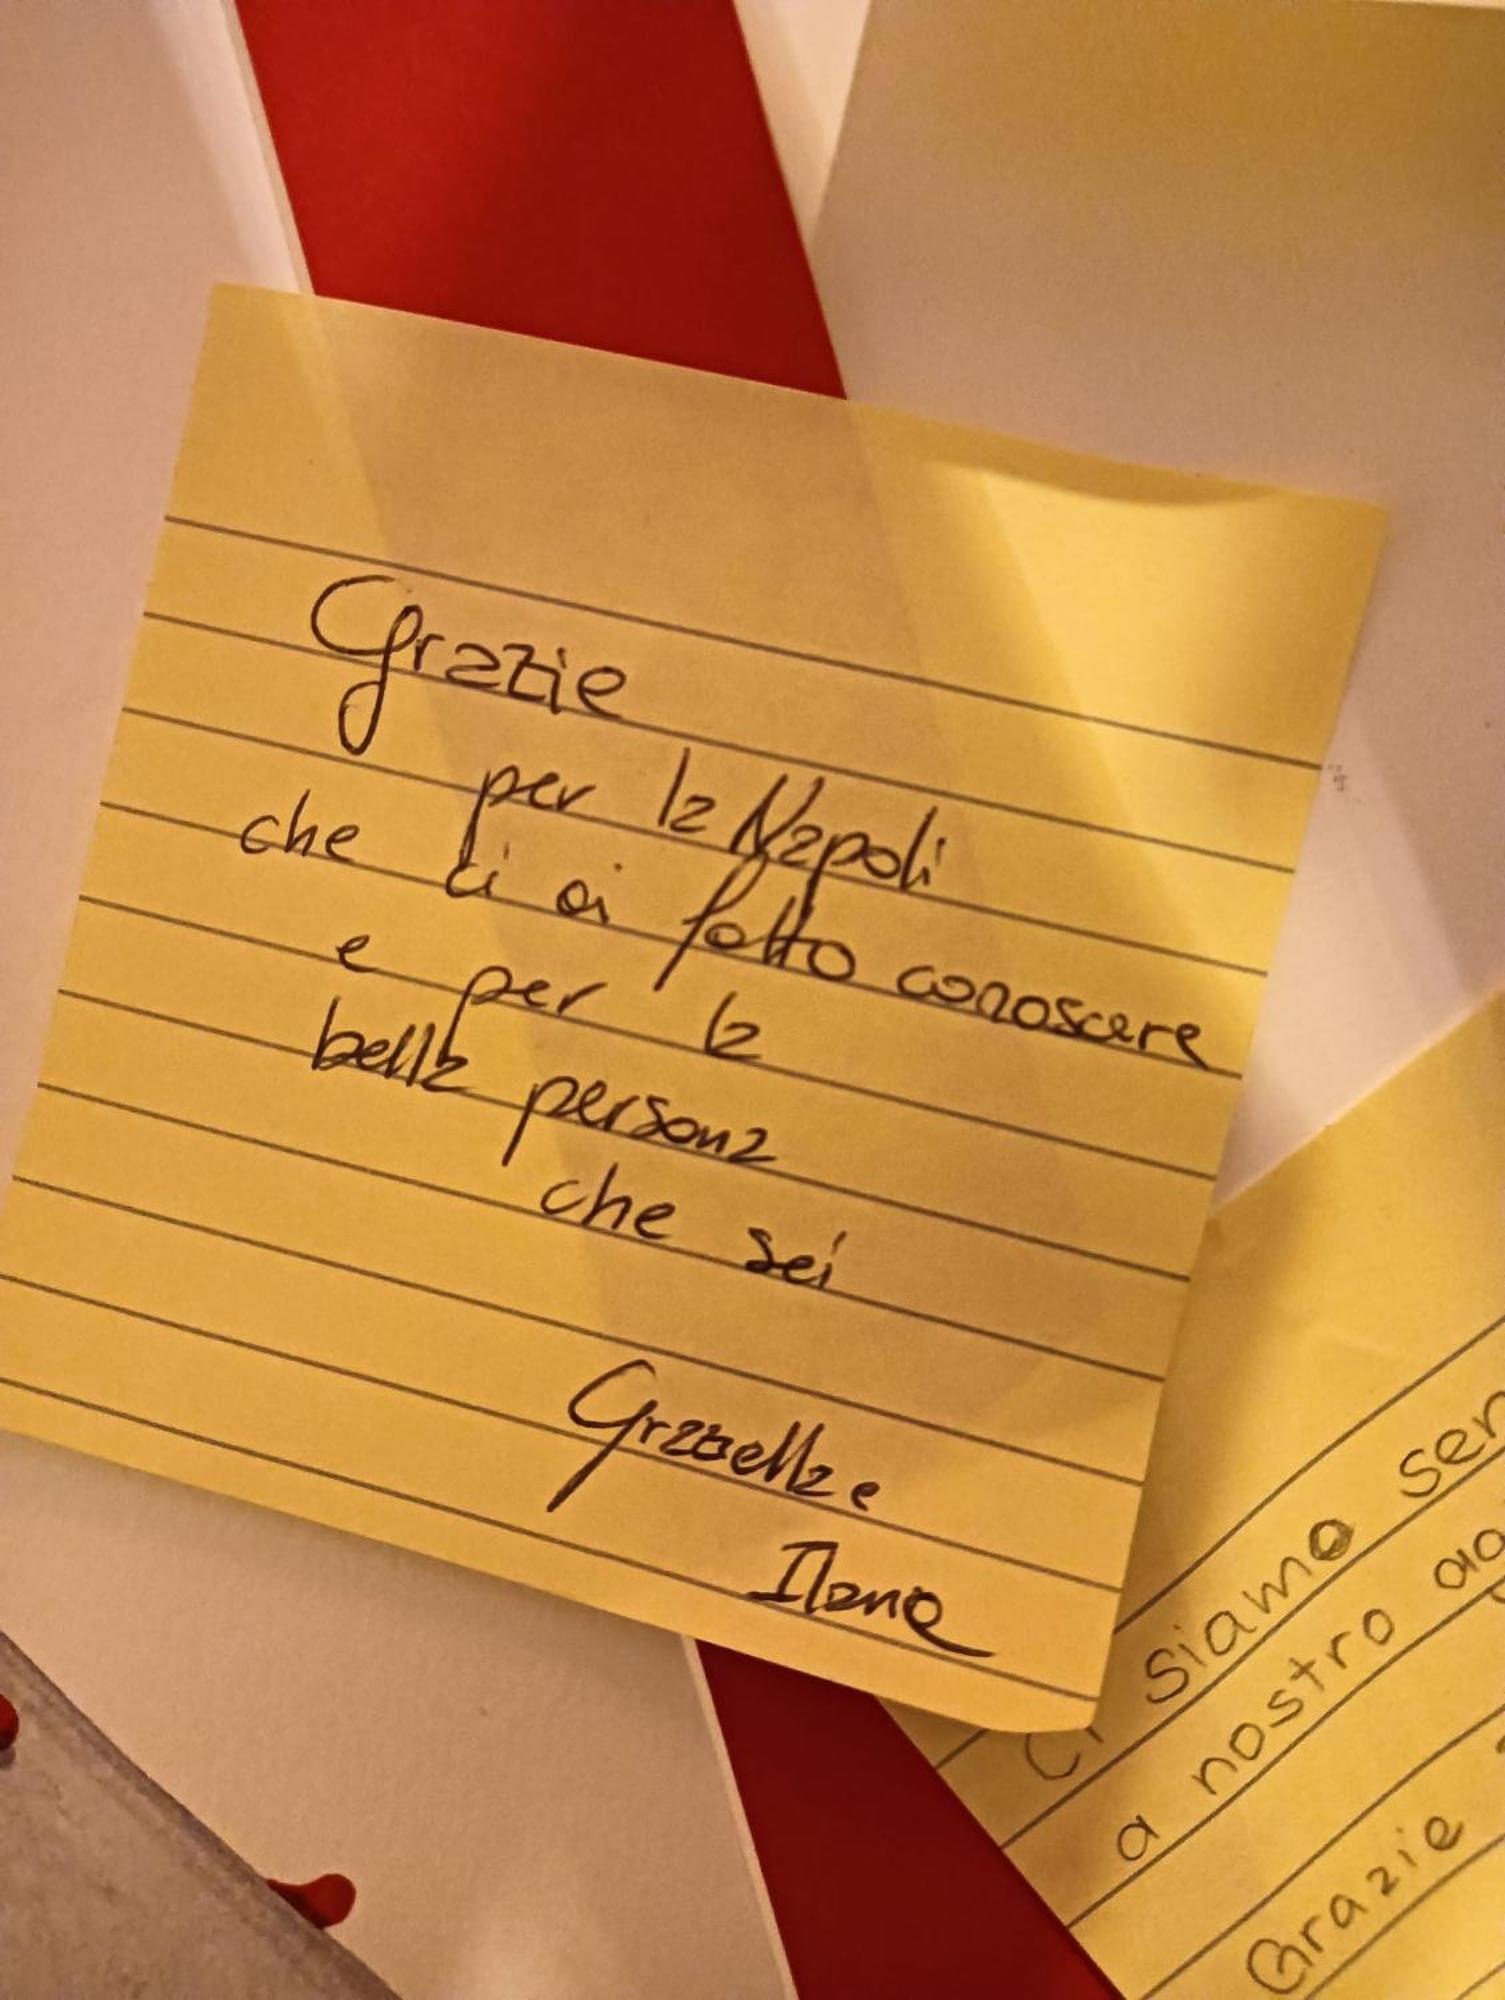 Grazie
per la Napoli
che ci ai fatto conoscere
e per la
bella persona
che sei
Graziella e
Ilane
Ci siamo sen
a nostro ag
Grazie